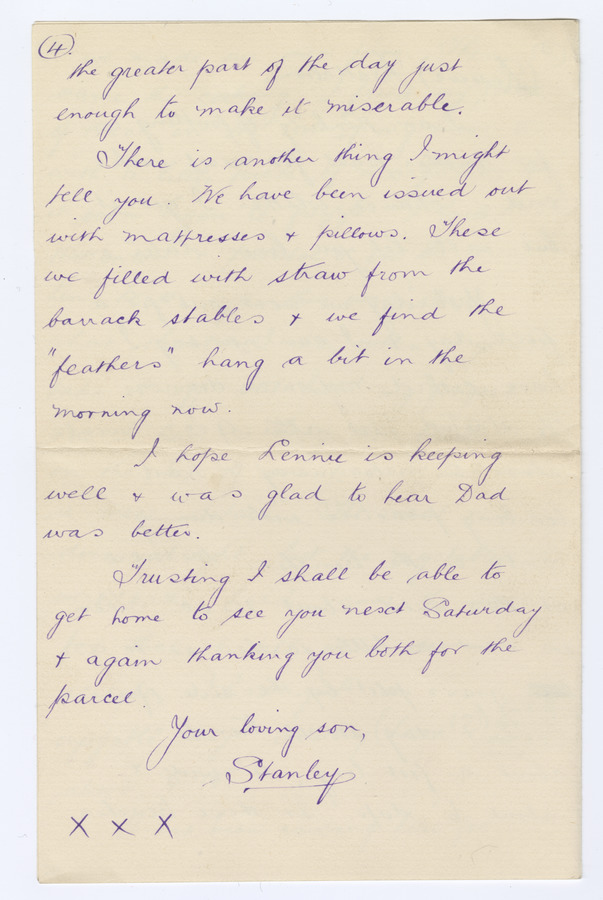 4.
the greater part of the day just
enough to make it miserable.
There is another thing I might
tell you. We have been issued out
with mattresses & pillows. These
we filled with straw from the
barrack stables & we find the
"feathers" hang a bit in the
morning now.
I hope Lennie is keeping
well & was glad to hear Dad
was better.
Trusting I shall be able to
get home to see you next Saturday
& again thanking you both for the
parcel.
Your loving son,
Stanley
X X X